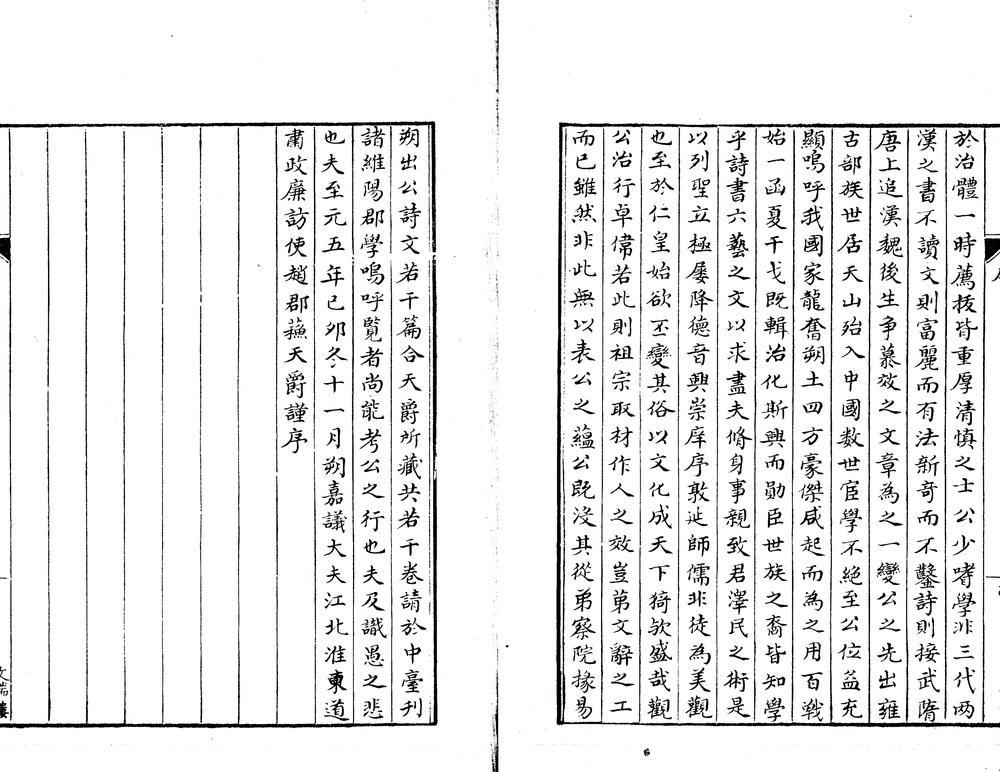 於治體一時薦拔皆重厚清慎之士公少嗜學非三代两
漢之書不讀文則富麗而有法新奇而不鑿詩則接武隋
唐上追漢魏後生争慕效之文章為之一變公之先出雍
古部族世居天山殆入中國數世宦學不絕至公位益充
顯嗚呼我國家龍奮朔土四方豪傑咸起而為之用百戰
始一函夏干戈既輯治化斯興而勛臣世族之裔皆知學
乎詩書六藝之文以求盡夫脩身事親致君澤民之術是
以列聖立極屢降德音興崇庠序敦延師儒非徒為美觀
也至於仁皇始欲丕變其俗以文化成天下猗欤盛哉觀
公治行卓偉若此則祖宗取材作人之效豈苐文辭之工
而已雖然非此無以表公之蘊公既没其從弟察院掾易
朔出公詩文若干篇合天爵所藏共若干卷請於中臺刊
諸維陽郡學嗚呼覧者尚能考公之行也夫及識愚之悲
也夫至元五年已夘冬十一月朔嘉議大夫江北淮東道
肅政廉訪使趙郡蘓天爵謹序
文瑞樓